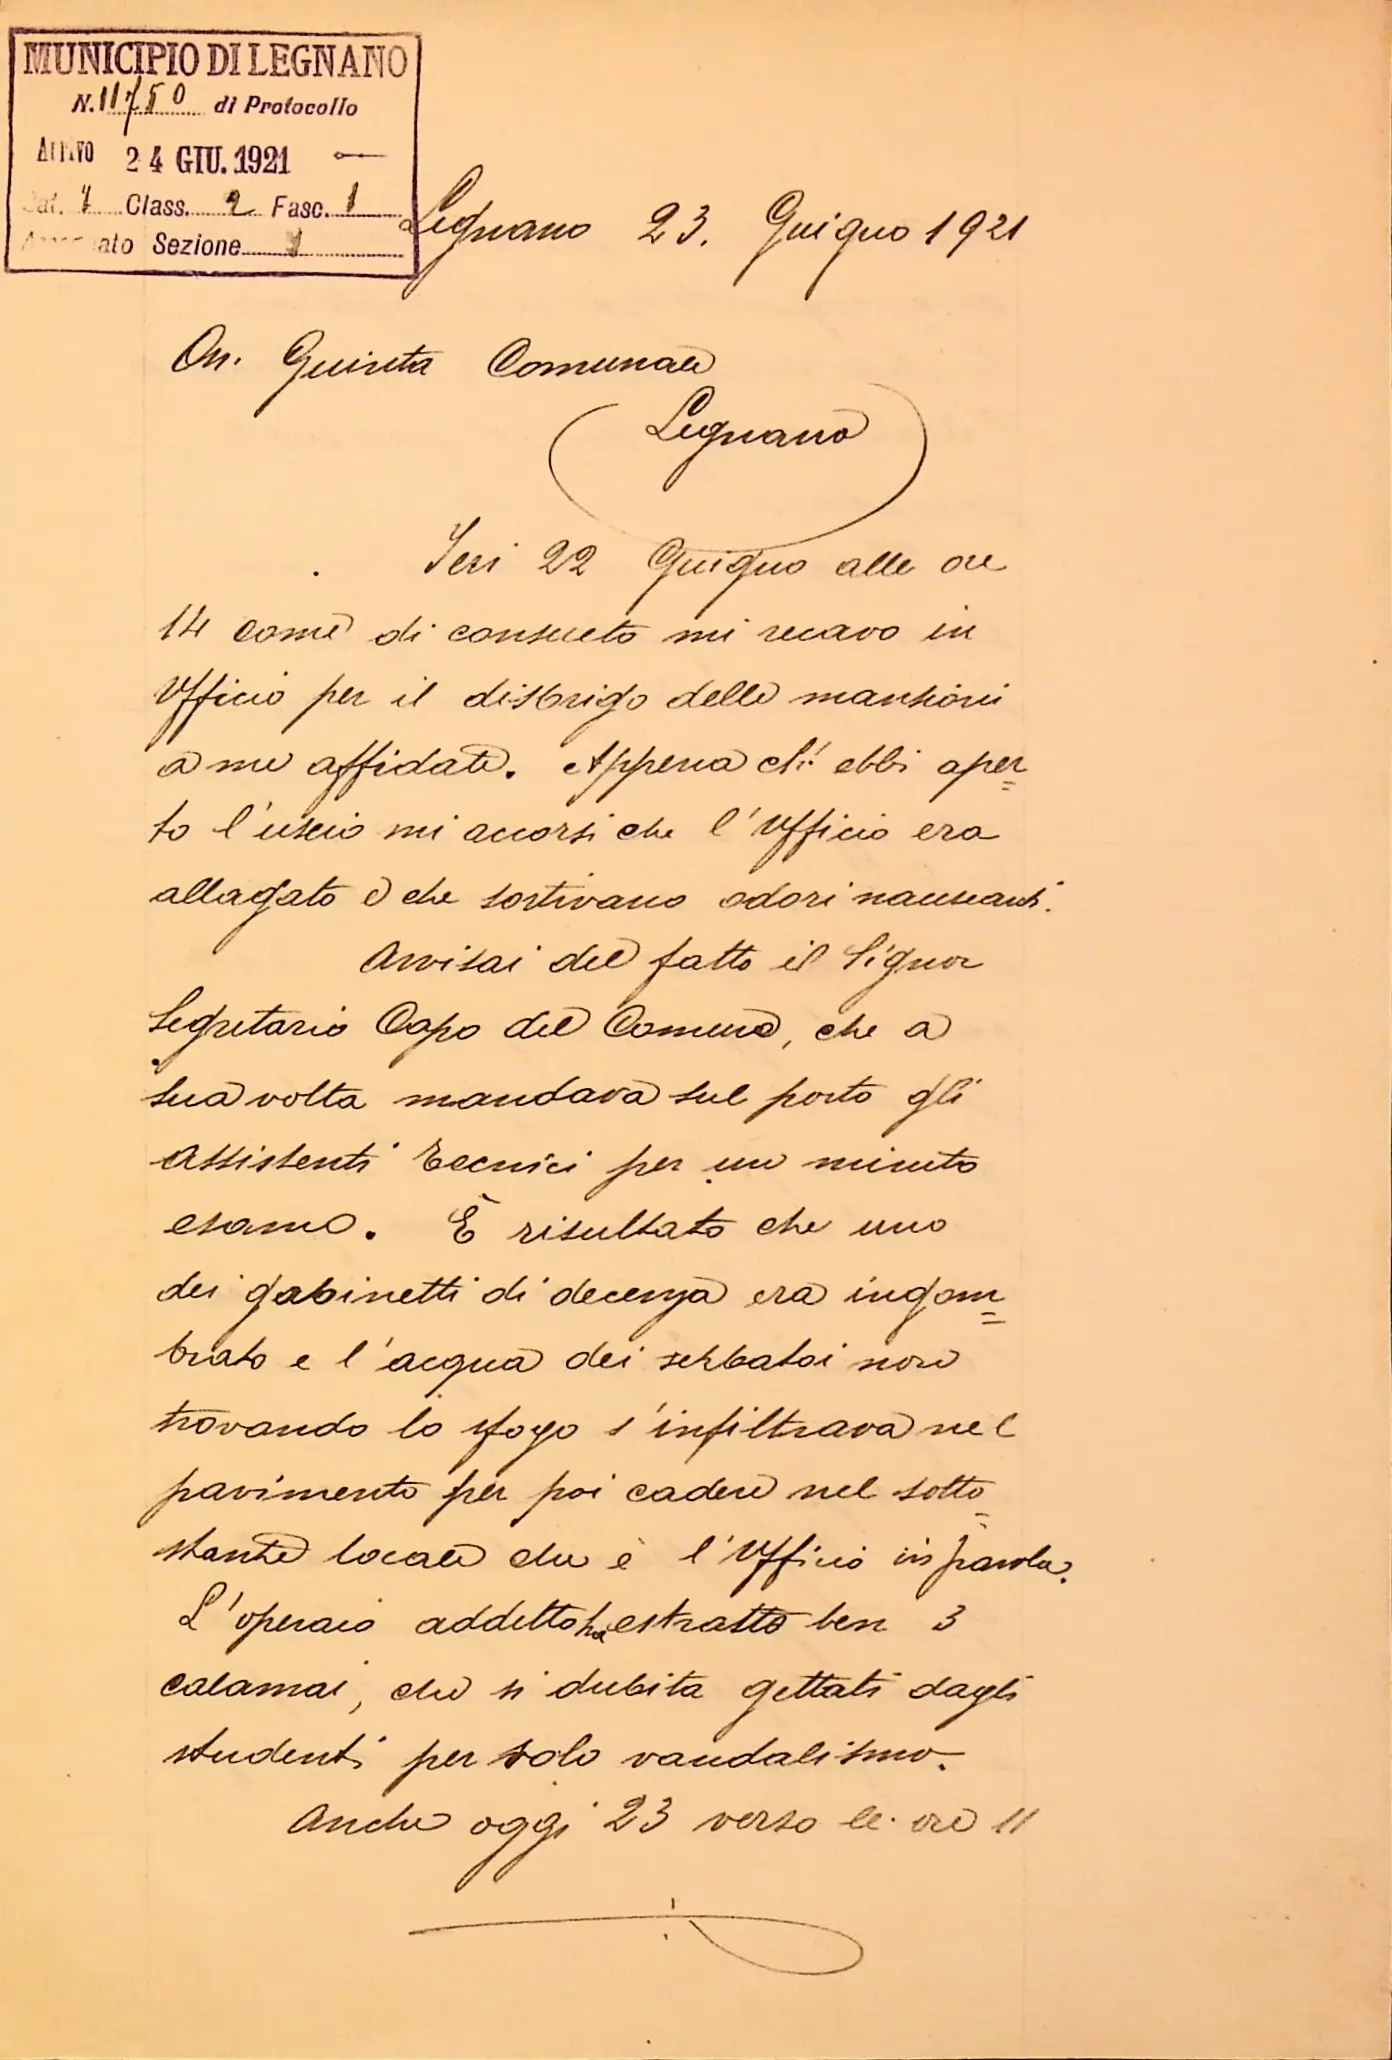 MUNICIPIO DI LEGNANO
N. 11750 di Protocollo
Arrivo 24 GIU. 1921
Cat. Class. 2 Fasc. 1
Sezione 1
Legnano 23. Giugno 1921
On. Giunta Comunale
Legnano
Ieri 22 Giugno alle ore
14 come di consueto mi recavo in
Ufficio per il disbrigo delle mansioni
a me affidate. Appena ch' ebbi aper=
to l'uscio mi accorsi che l'Ufficio era
allagato e che sortivano odori nauseanti.
Avvisai del fatto il Signor
Segretario Capo del Comune, che a
sua volta mandava sul posto gli
assistenti tecnici per un minuto
esame. È risultato che uno
dei gabinetti di decenza era ingom=
brato e l'acqua dei serbatoi non
trovando lo sfogo s'infiltrava nel
pavimento per poi cadere nel sotto=
stante locale che è l'Ufficio in parola.
L'operaio addetto ha estratto ben 3
calamai, che si dubita gettati dagli
studenti per solo vandalismo.
Anche oggi 23 verso le ore 11